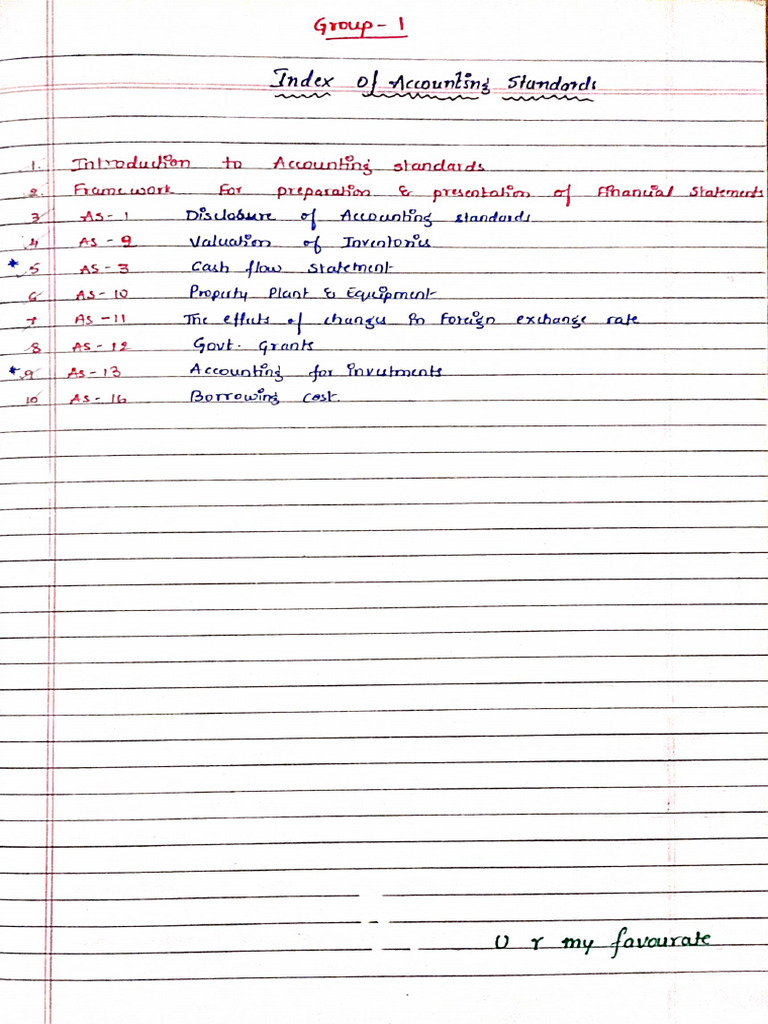 Group - 1
Index of Accounting Standards
1. Introduction to Accounting standards
2. Framework For preparation & presentation of Financial Statements
3 AS - 1 Disclosure of Accounting standards
4 AS - 2 Valuation of Inventories
* 5 AS - 3 Cash flow statement
6 AS - 10 Property Plant & Equipment
7 AS - 11 The effects of changes in Foreign exchange rate
8 AS - 12 Govt. Grants
* 9 AS - 13 Accounting for investments
10 AS - 16 Borrowing cost.
U r my favourate